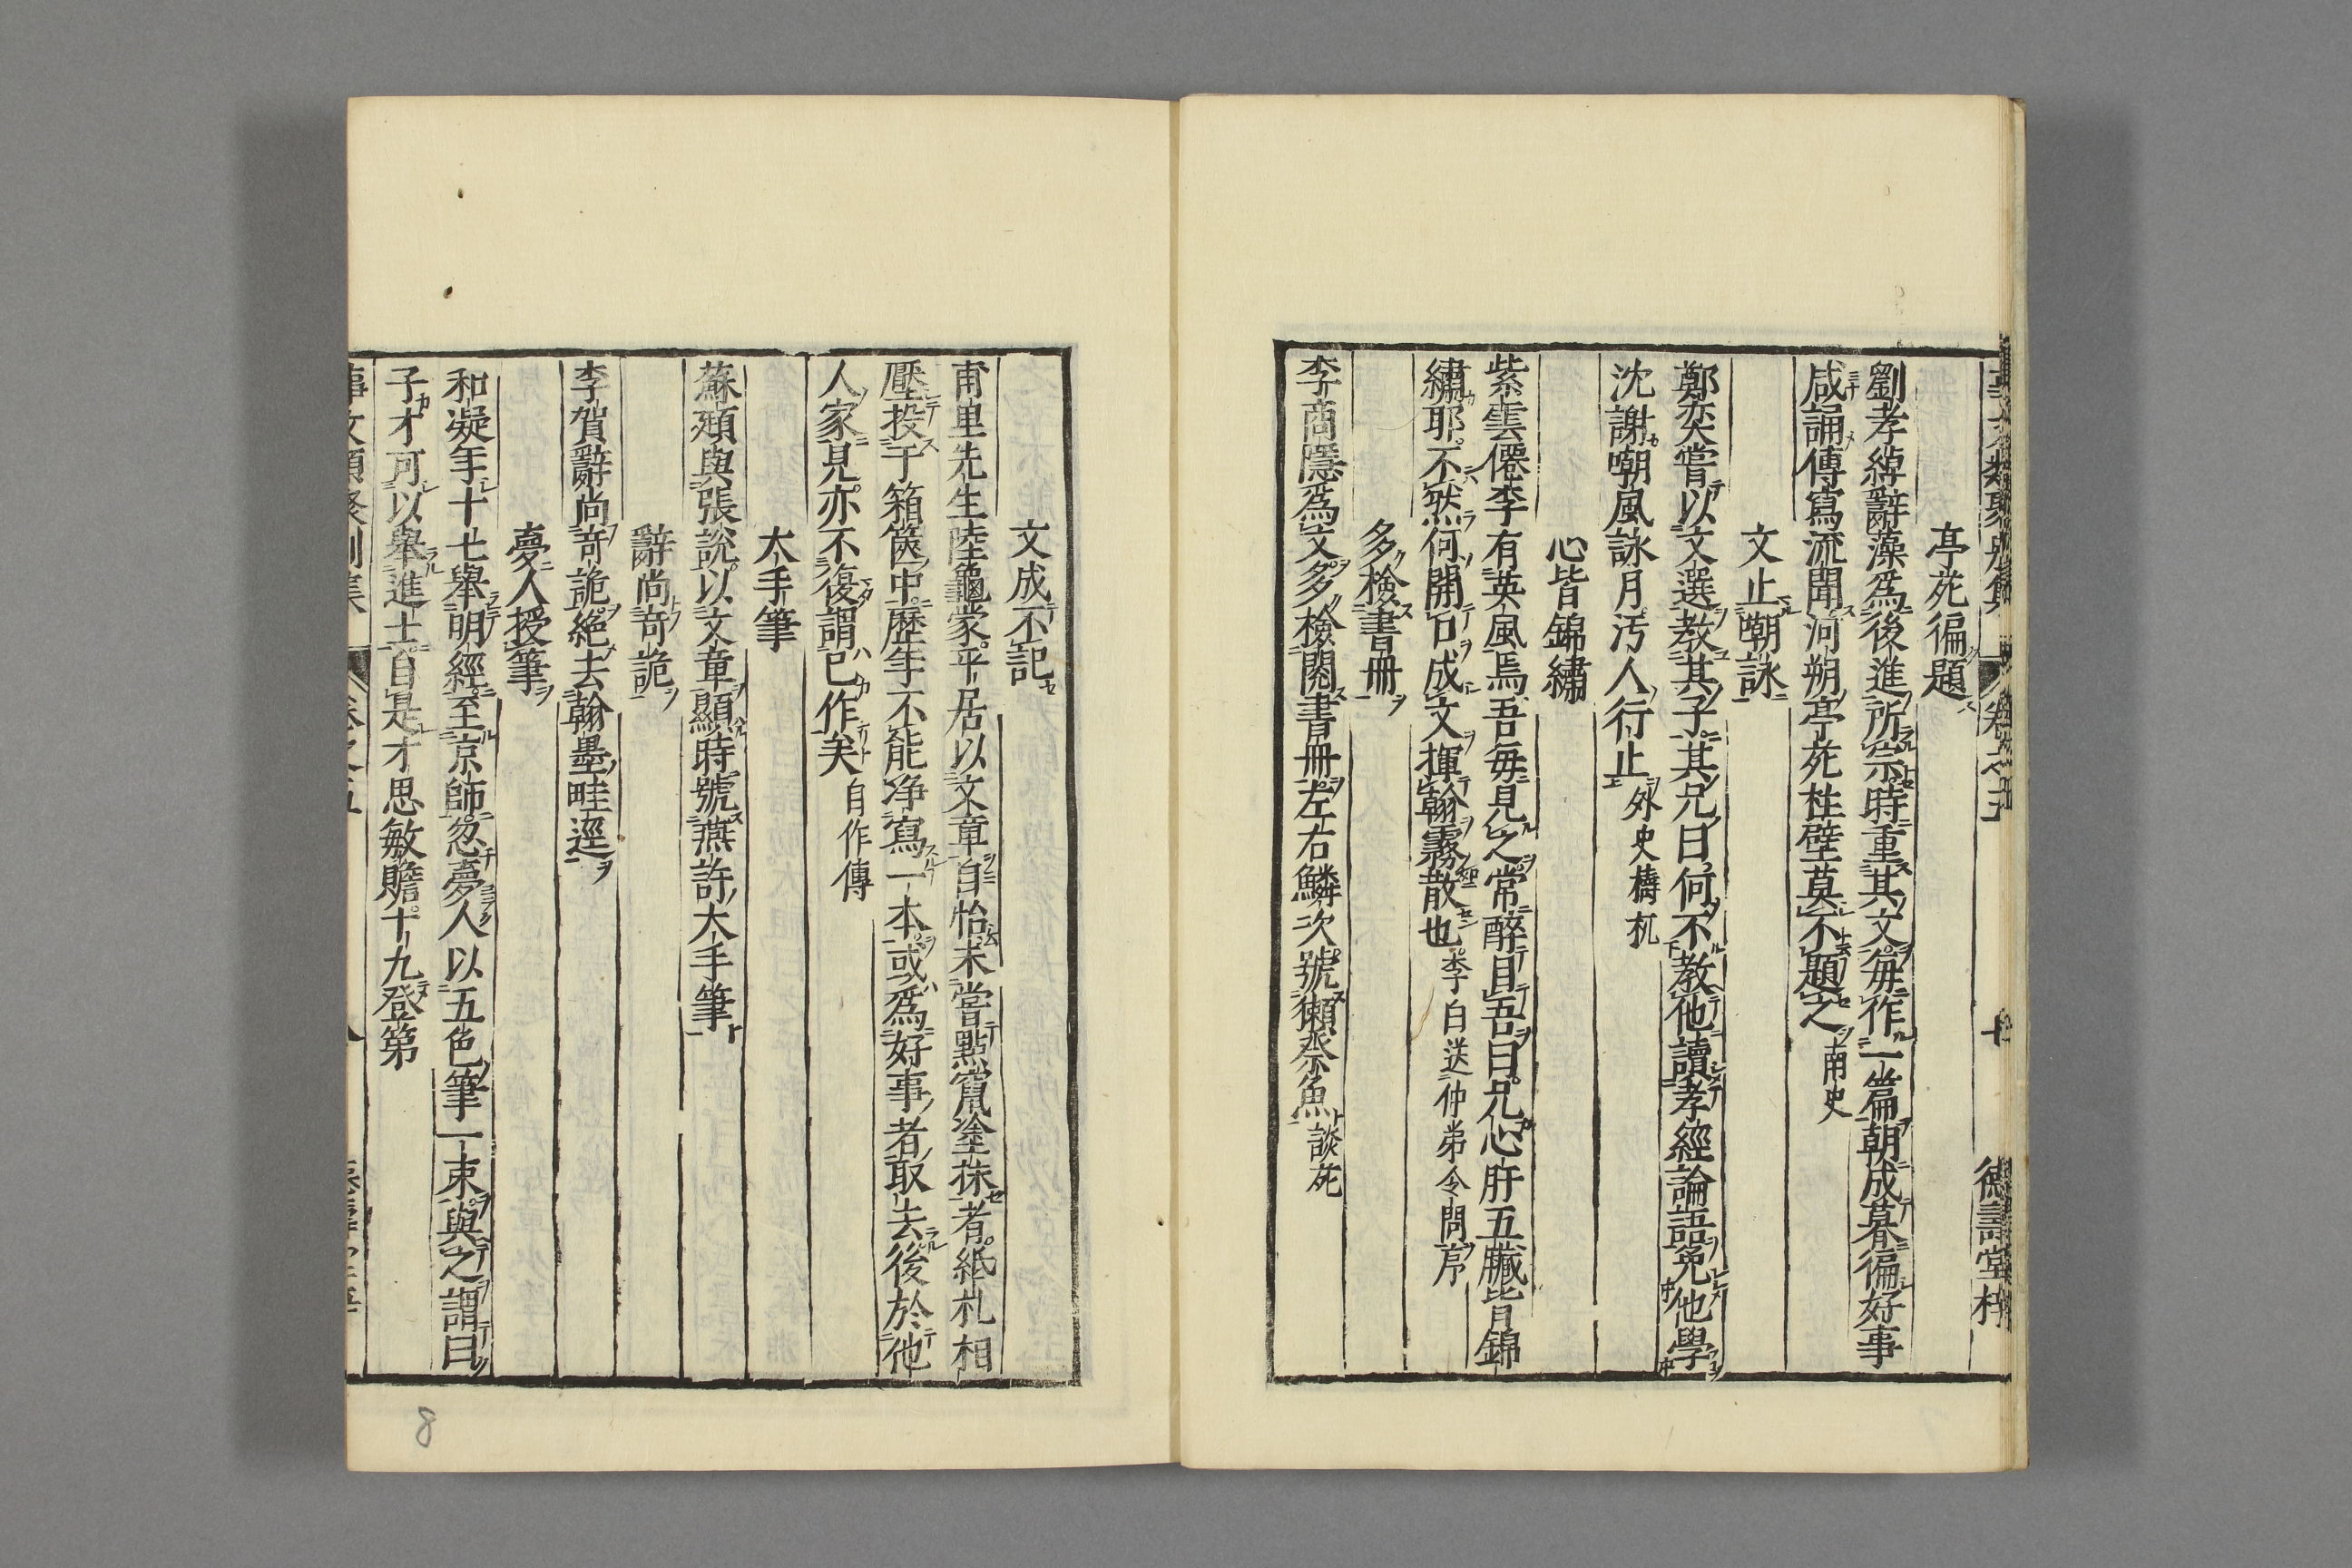 亭苑徧題
劉孝綽辭藻爲後進所宗時重其文每作一篇朝成暮徧好事
咸誦傳寫流聞河朔亭苑柱壁莫不題之南史
文止嘲詠
鄭奕嘗以文選教其子其兄曰何不教他讀孝經論語免他學
沈謝嘲風詠月汚人行止外史檮杌
心皆錦繡
紫雲僊李有英風焉吾毎見之常醉目吾曰兄心肝五臟皆錦
繡耶不然何開口成文揮翰霧散也李白送仲弟令問序
多檢書冊
李商隱爲文多檢閱書冊左右鱗次號獺祭魚談苑
文成不記
甫里先生陸龜蒙平居以文章自怡未嘗點竄塗抹者紙札相
壓投于箱篋中歷年不能淨寫一本或爲好事者取去後於他
人家見亦不復謂已作矣自作傳
大手筆
蘇頲與張說以文章顯時號燕許大手筆
辭尚奇詭
李賀辭尚奇詭絕去翰墨畦逕
夢人授筆
和凝年十七舉明經至京師忽夢人以五色筆一束與之謂曰
子才可以舉進士自是才思敏贍十九登第
8